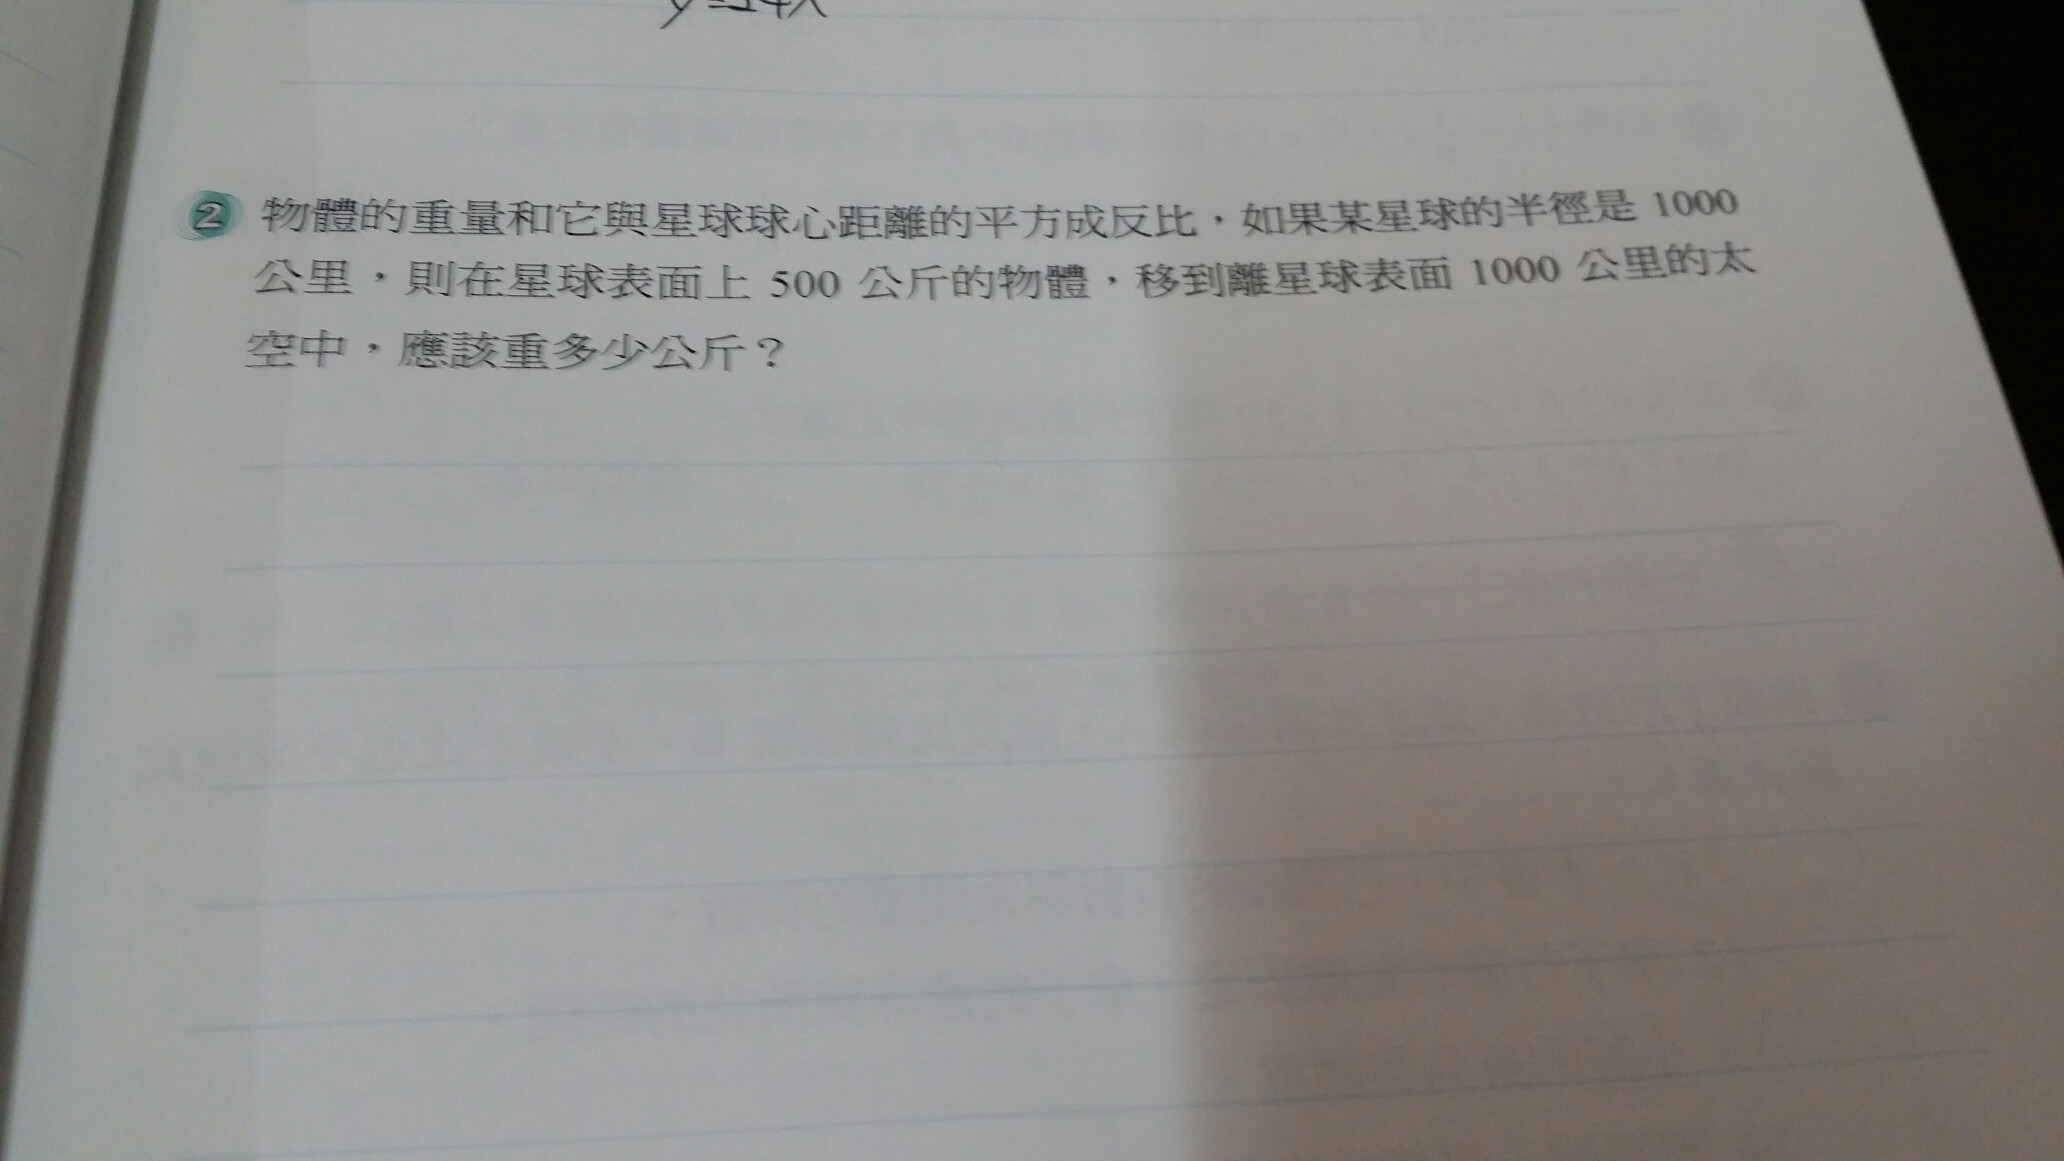 y=24x
2 物體的重量和它與星球球心距離的平方成反比，如果某星球的半徑是 1000
公里，則在星球表面上 500 公斤的物體，移到離星球表面 1000 公里的太
空中，應該重多少公斤？